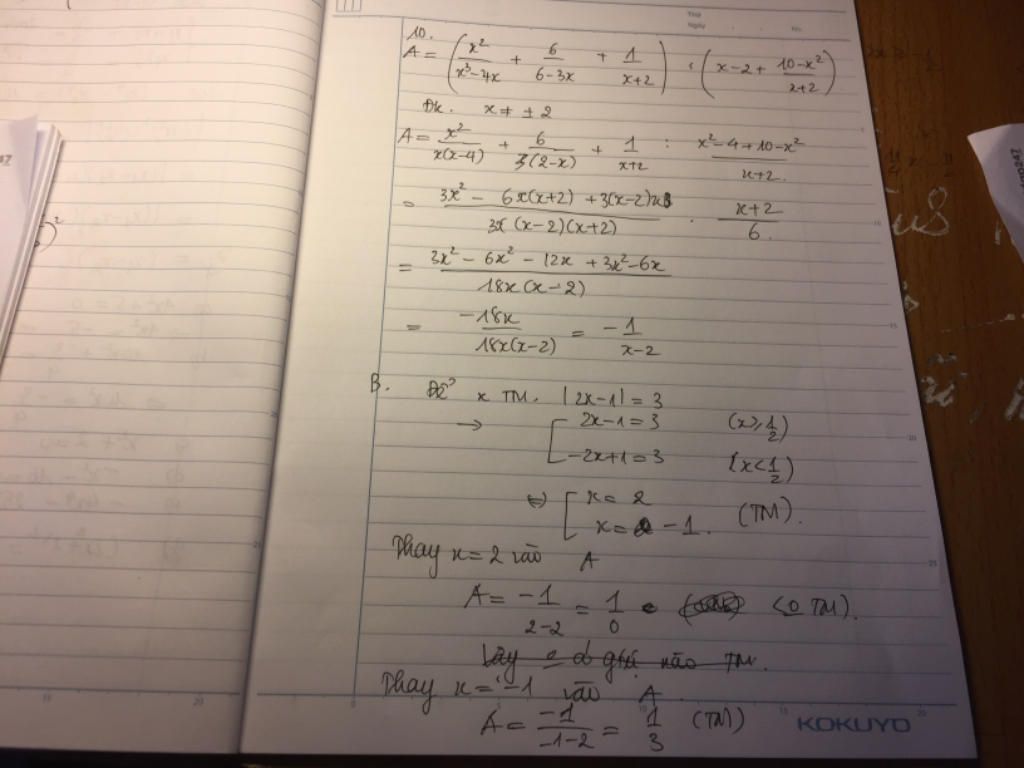 Thứ
Ngày . . No.
10.
A = (x²/(x³-4x) + 6/(6-3x) + 1/(x+2)) : (x-2+ (10-x²)/(x+2))
Đk. x ≠ ± 2
A = x²/(x(x-4)) + 6/(3(2-x)) + 1/(x+2) : (x²-4+10-x²)/(x+2)
= (3x² - 6x(x+2) + 3(x-2)x)/(3x(x-2)(x+2)) . (x+2)/6
= (3x² - 6x² - 12x + 3x² - 6x)/(18x(x-2))
= -18x/(18x(x-2)) = -1/(x-2)
B. Để x TM. |2x-1| = 3
→ [ 2x-1 = 3 (x ≥ 1/2)
-2x+1 = 3 (x < 1/2)
⇔ [ x = 2
x = -1. (TM).
Thay x = 2 vào A
A = -1/(2-2) = 1/0 TM).
Thay x = -1 vào A
A = -1/(-1-2) = 1/3 (TM)
KOKUYO